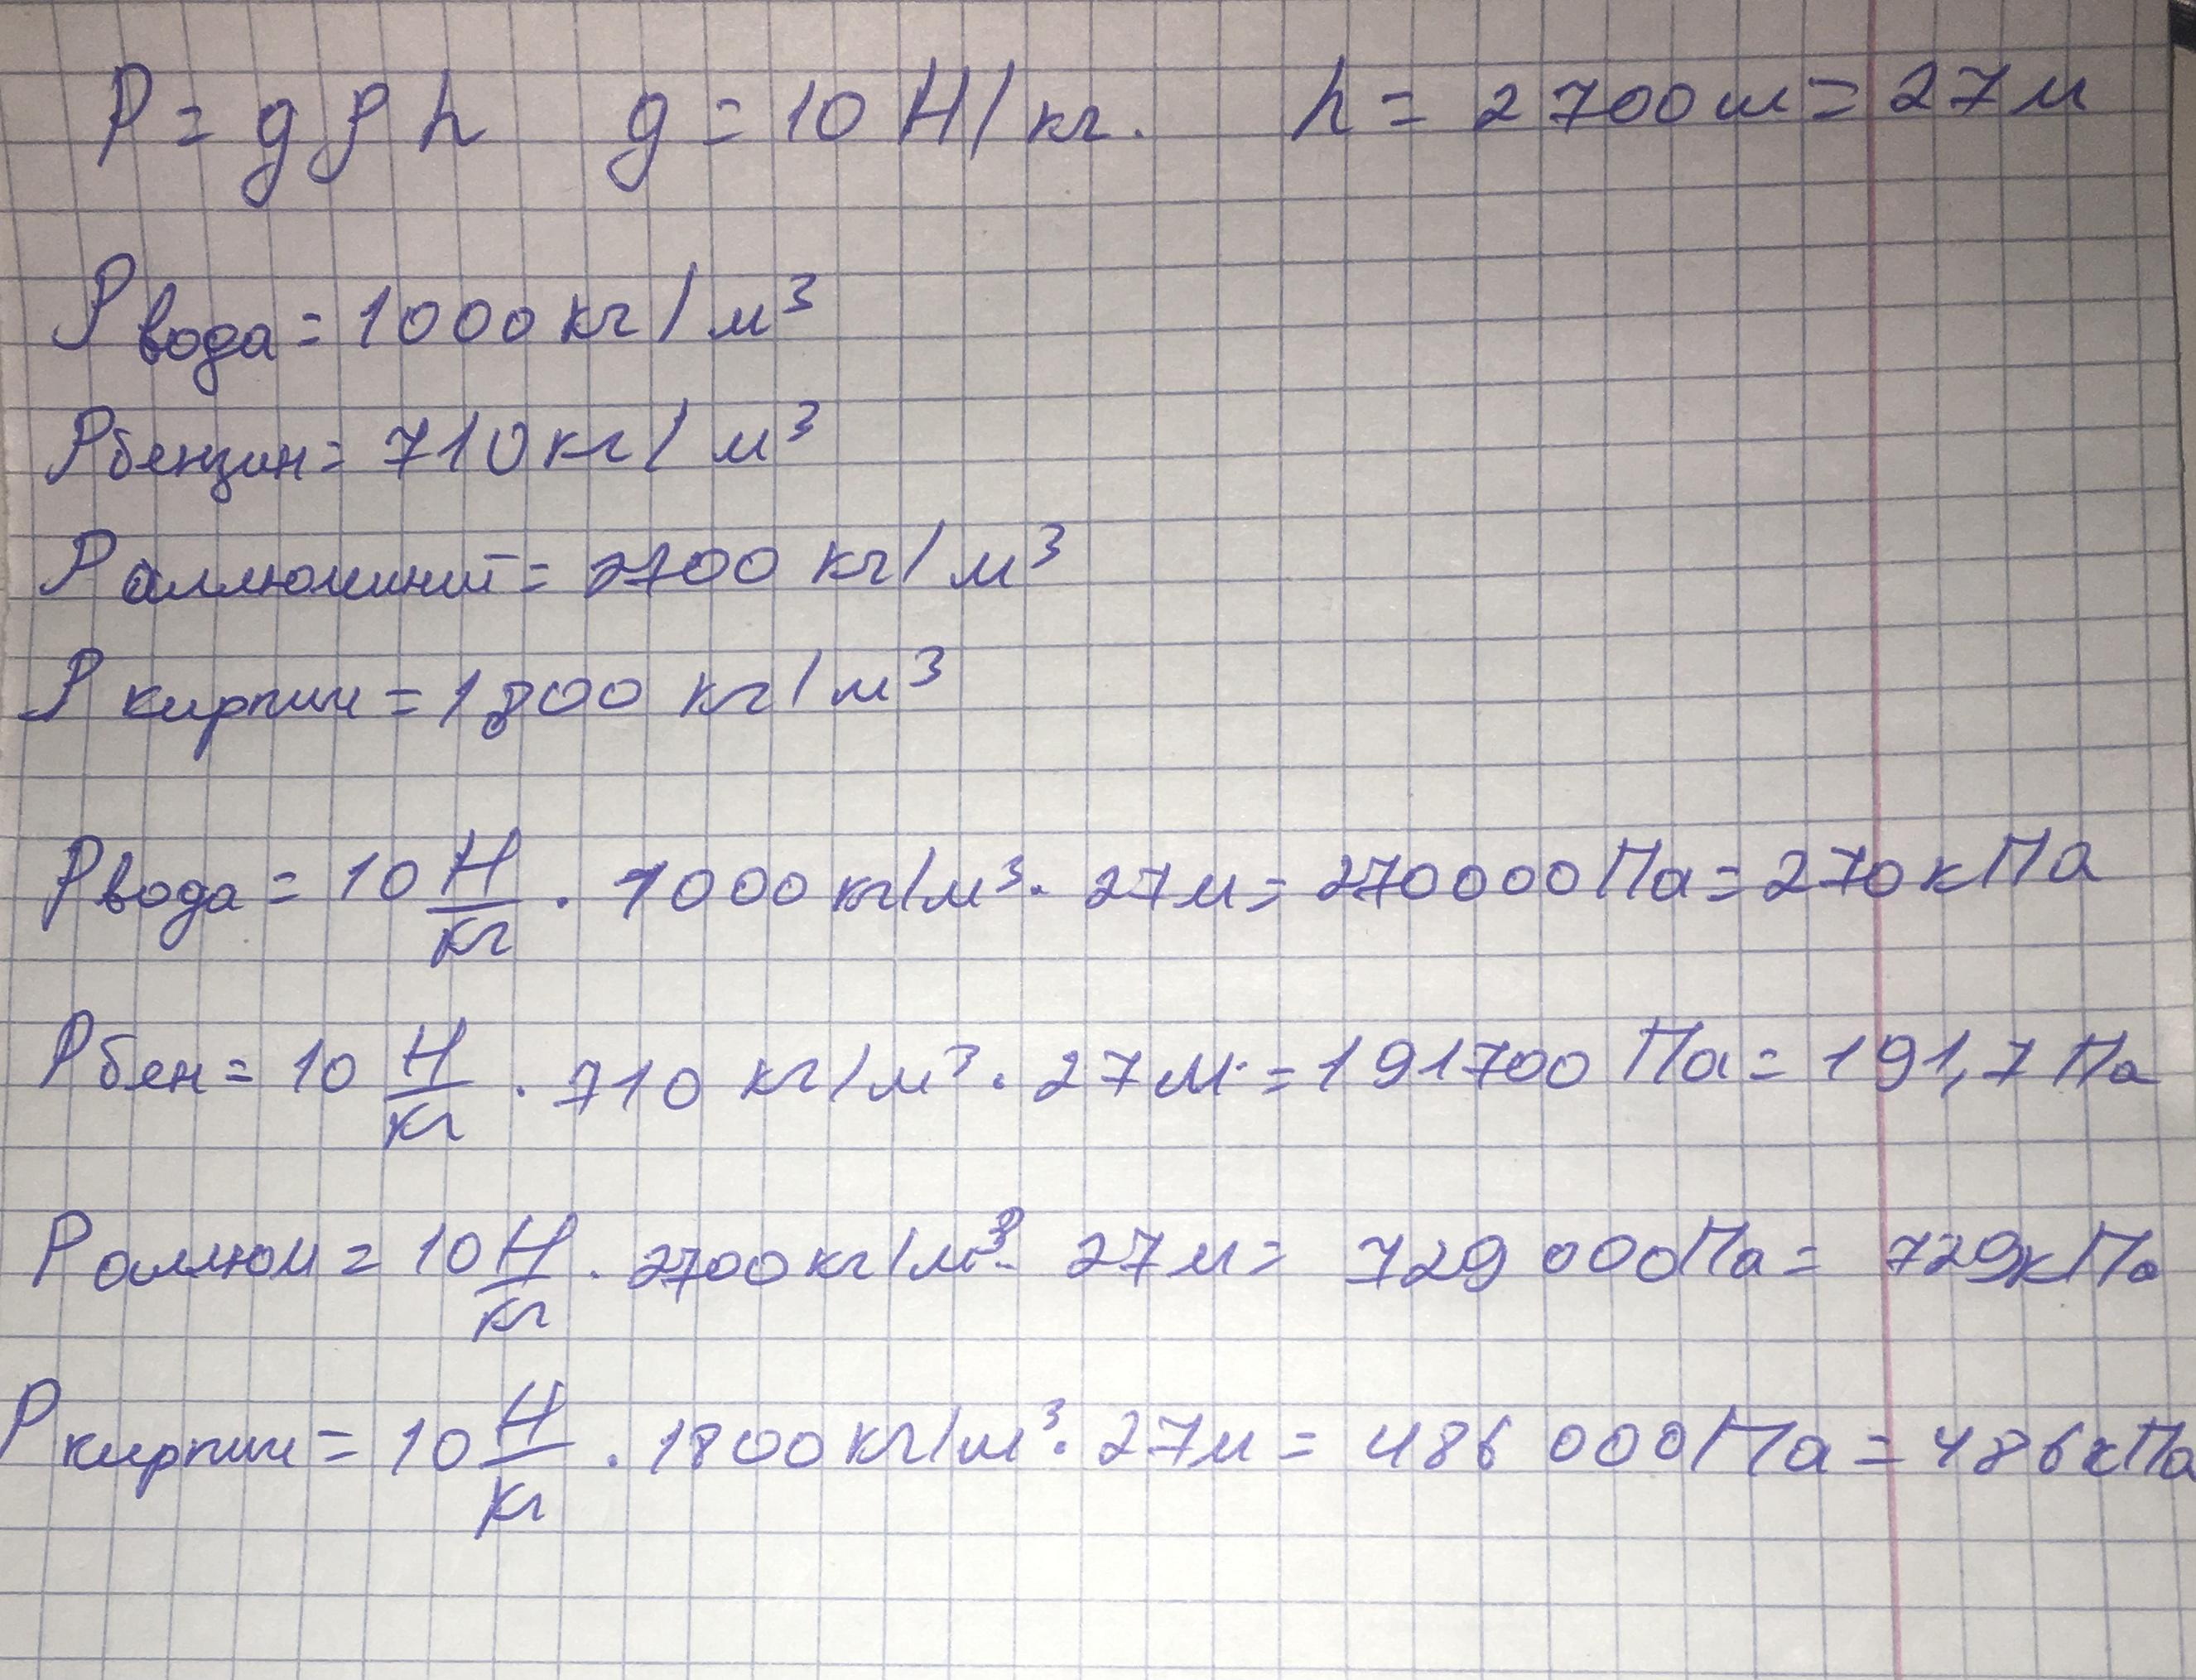 P = gρh g = 10 Н/кг. h = 2700м = 27м
ρ вода = 1000кг/м³
ρ бензин = 710кг/м³
ρ аллюминий = 2700 кг/м³
ρ кирпич = 1800 кг/м³
P вода = 10 Н/кг · 1000кг/м³ · 27м = 270000Па = 270кПа
P бен = 10 Н/кг · 710 кг/м³ · 27м = 191700 Па = 191,7 Па
P аллюм = 10 Н/кг · 2700кг/м³ · 27м = 729 000Па = 729кПа
P кирпич = 10 Н/кг · 1800кг/м³ · 27м = 486 000Па = 486кПа